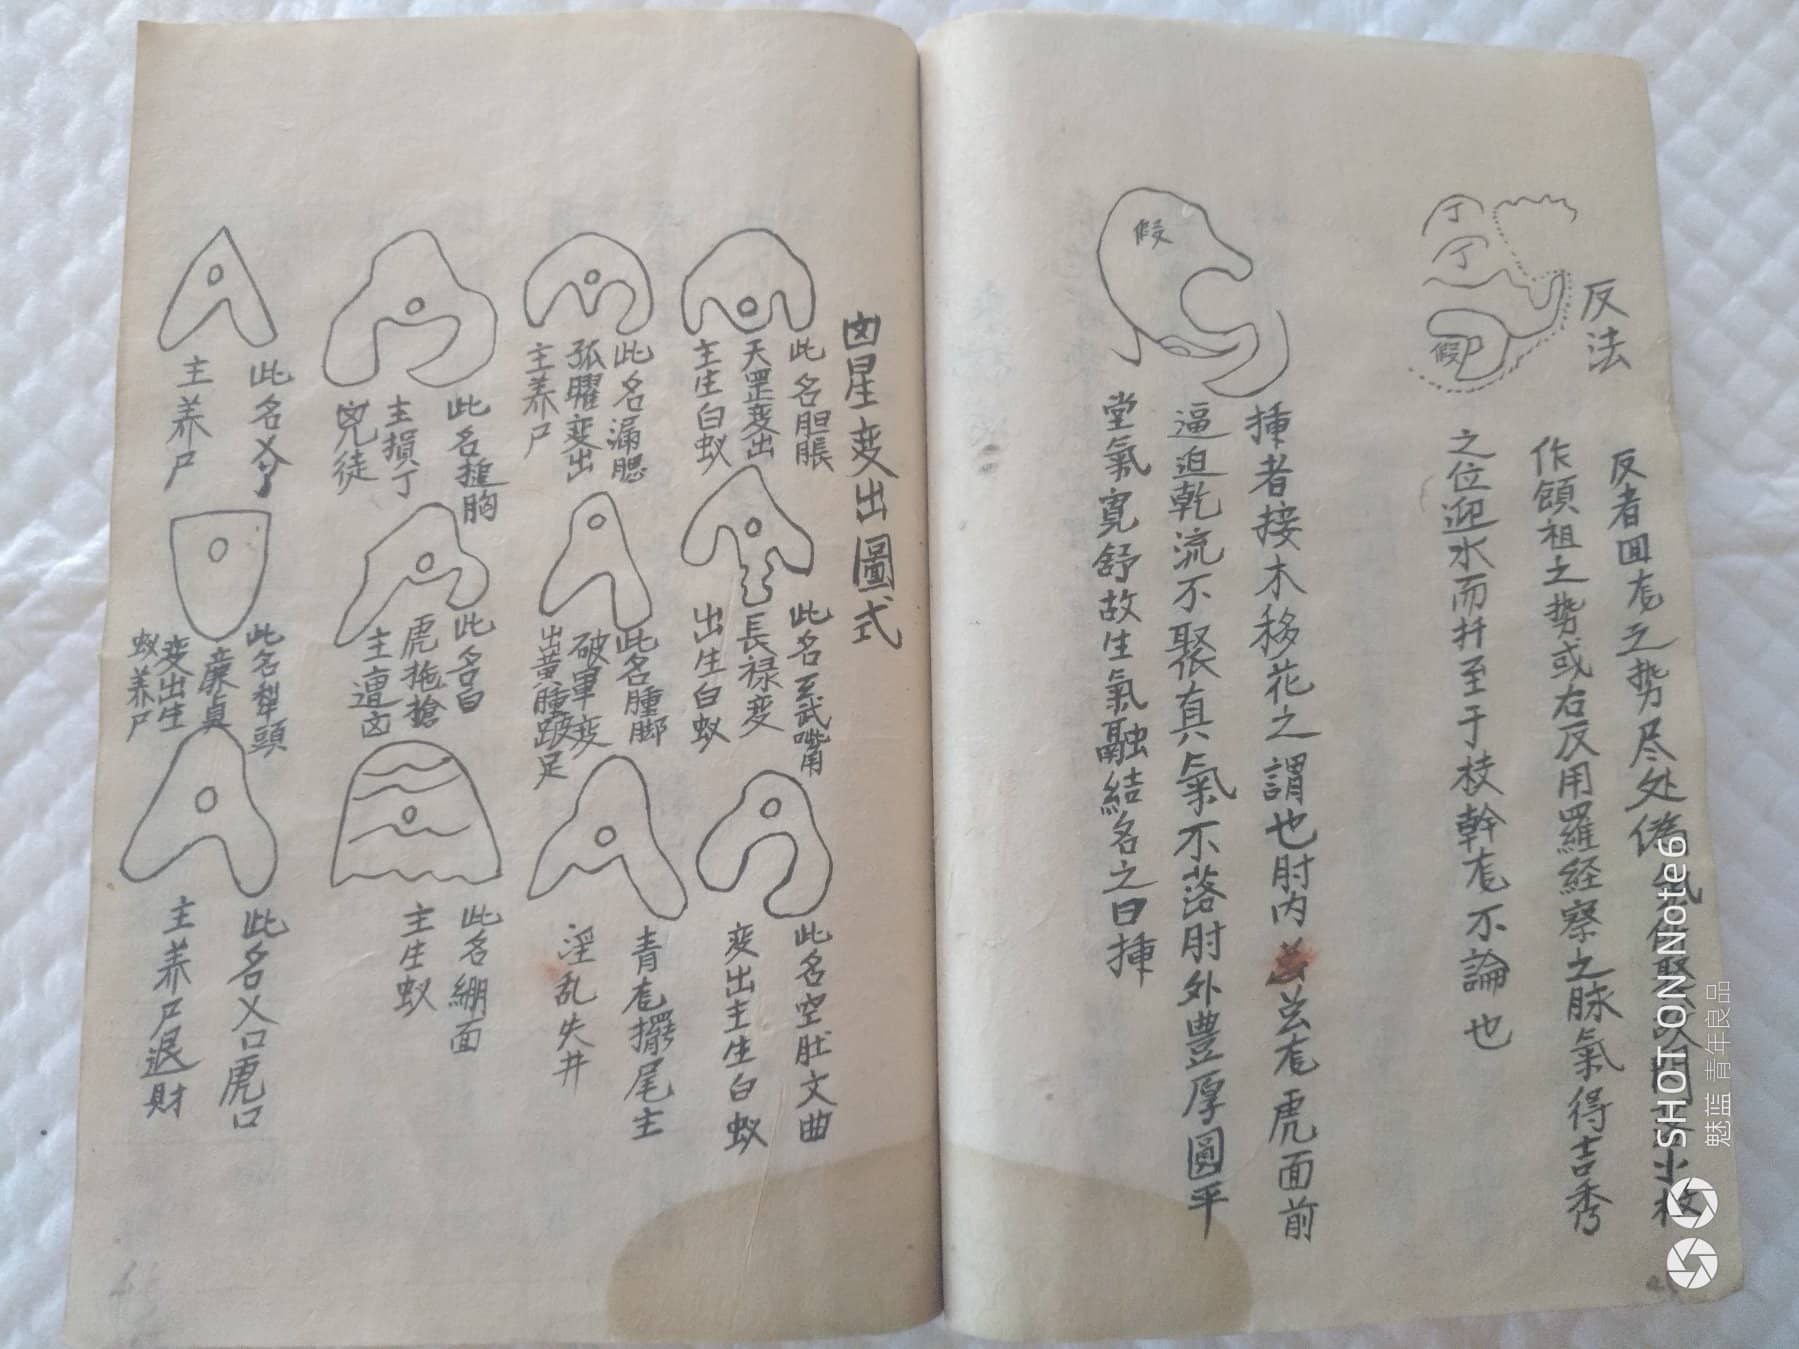 反法
反者回尨之势尽处
作領祖之势或右反用羅経察之脉氣得吉秀
之位迎水而扦至于枝幹尨不論也
丁
丁
假
假
揷者接木移花之謂也肘内玄尨虎面前
逼迫乾流不聚真氣不落肘外豊厚圓平
堂氣寛舒故生氣融結名之曰揷
凶星变出圖式
此名胆脹
天罡变出
主生白蚁
此名玄武嘴
長禄变
出生白蚁
此名空肚文曲
变出主生白蚁
此名漏腮
孤曜变出
主养尸
此名腫脚
破軍变
出黄腫跛足
青尨擺尾主
淫乱失井
此名搥胸
主損丁
兇徒
此名白
虎拖槍
主遭凶
此名綳面
主生蚁
此名叉
主养尸
此名犁頭
廉貞
变出生
蚁养尸
此名叉口虎口
主养尸退財
SHOT ON Note6
魅蓝 青年良品